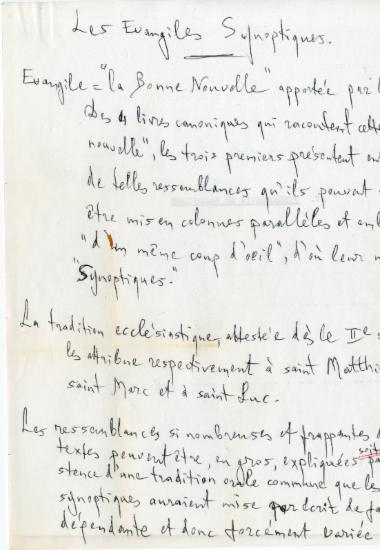 Les Evangiles Synoptiques.
Evangile = "la Bonne Nouvelle" apportée par l
Des 4 livres canoniques qui racontent cette
nouvelle", les trois premiers présentent en
de telles ressemblances qu'ils peuvent
être mis en colonnes parallèles et em
"d'un même coup d'oeil", d'où leur n
"Synoptiques."
La tradition ecclésiastique, attestée dès le IIe s
les attribue respectivement à saint Matthi
saint Marc et à saint Luc.
Les ressemblances si nombreuses et frappantes d
textes peuvent être, en gros, expliquées soit pa
stence d'une tradition orale commune que les
synoptiques auraient mise par écrit de fa
dépendante et donc forcément variée